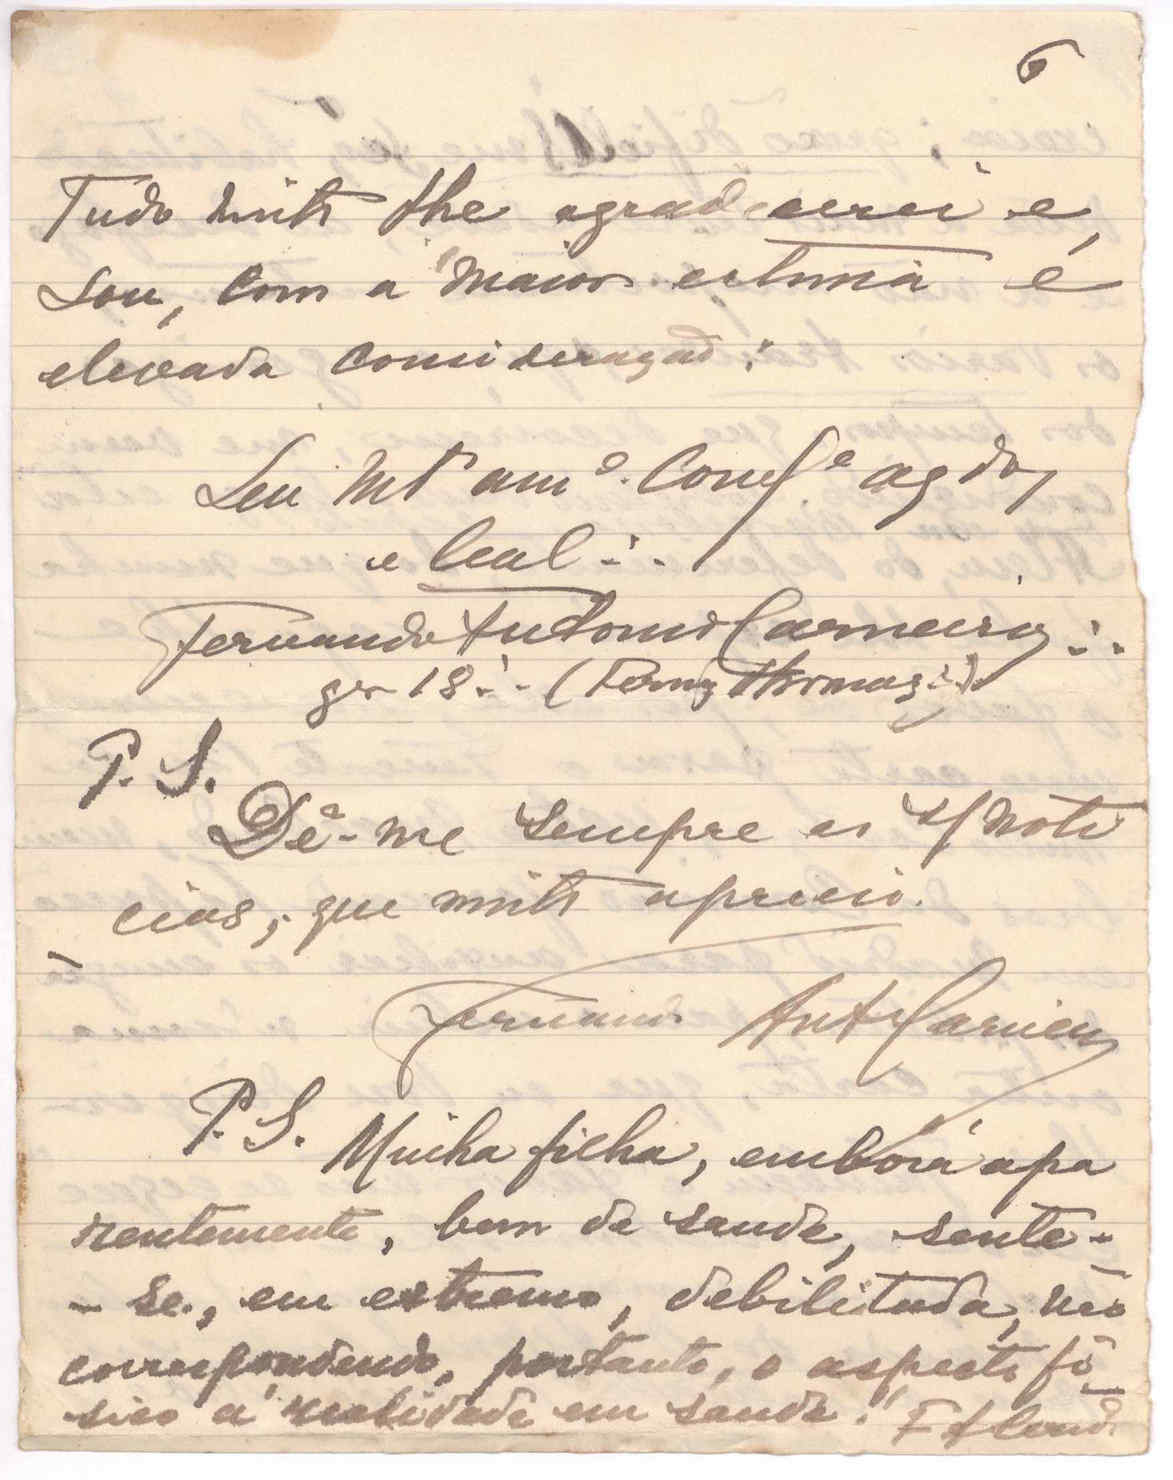 6
Tudo muito lhe agradecerei e
sou, com a maior estima e
elevada consideração:
Seu Mto amo. Confe agdo,
e leal ∴
Fernando Antonio Carneiro ∴
gr 18 ∴ (
P. S.
Dê-me sempre as s/ noti
cias, que muito aprecio.
Fernando Ant Carneiro
P. S. Minha filha, embora apa
rentemente, bem de saude, sente-
- se, em extremo, debilitada, não
correspondendo, portanto, o aspecto fi-
sico á realidade em saude. F A